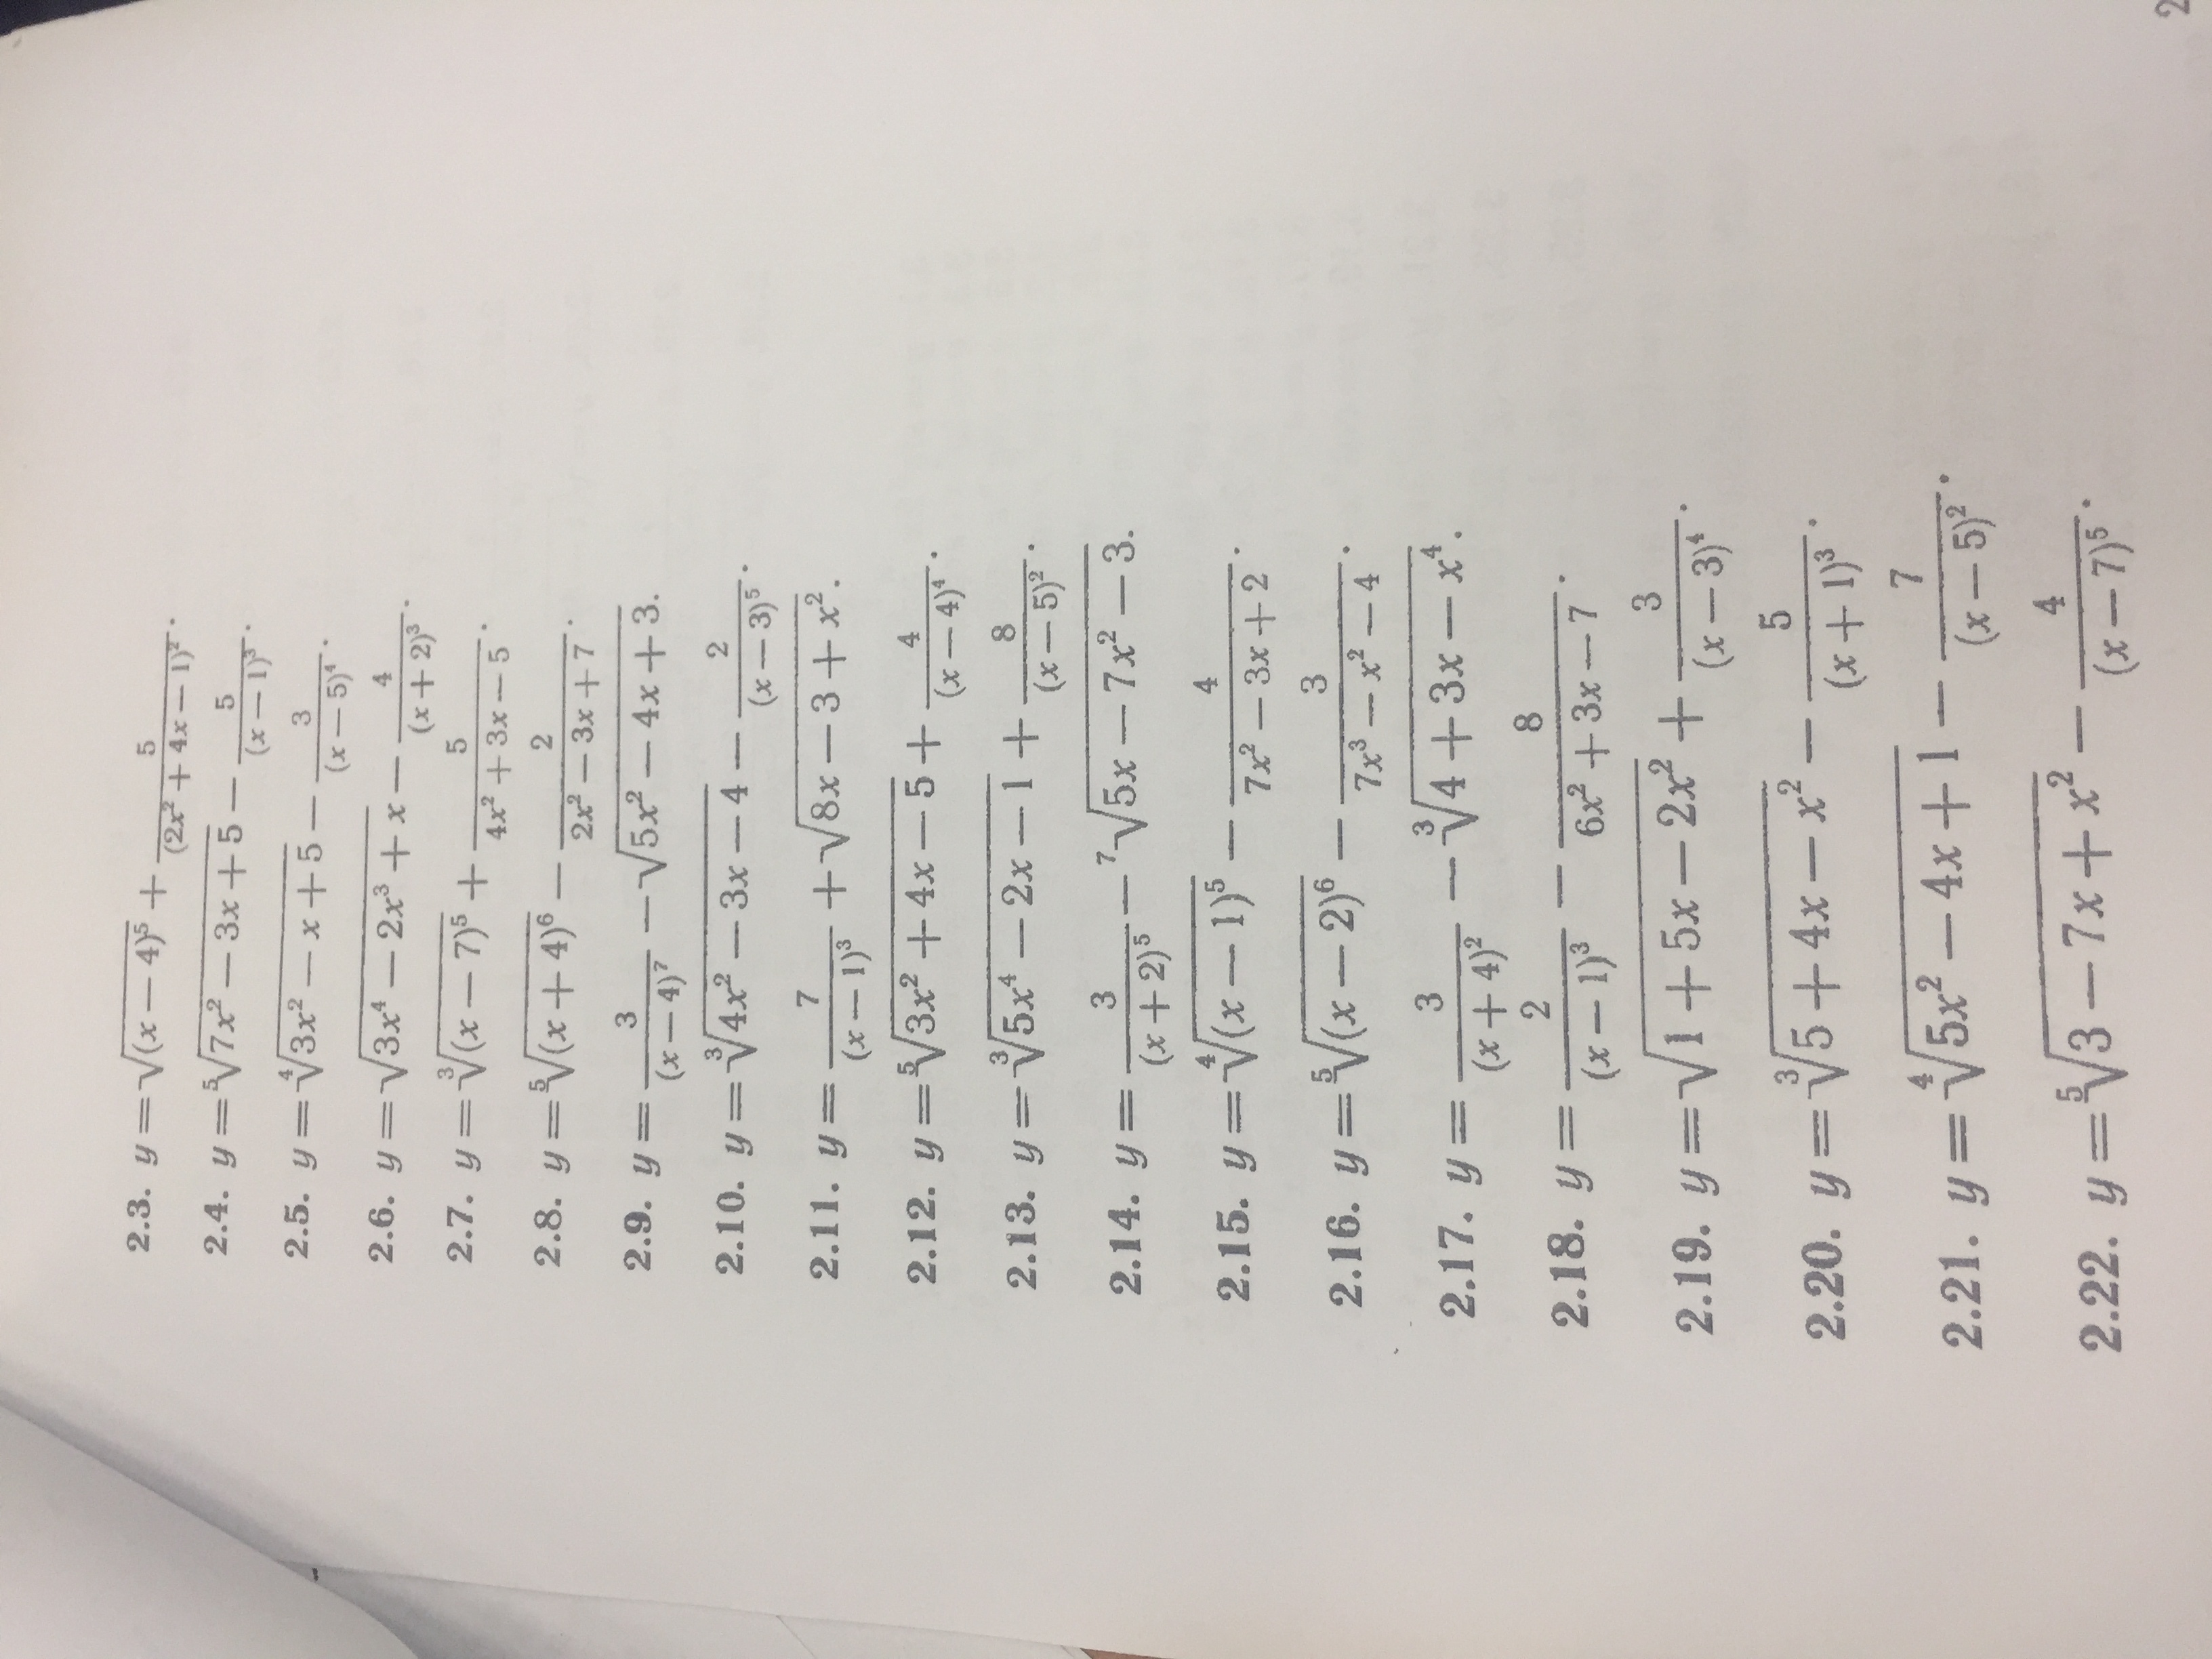 2.3. y = √((x − 4)⁵) + 5/(2x² + 4x − 1)².
2.4. y = ⁵√(7x² − 3x + 5) − 5/(x − 1)³.
2.5. y = ⁴√(3x² − x + 5) − 3/(x − 5)⁴.
2.6. y = √(3x⁴ − 2x³ + x) − 4/(x + 2)³.
2.7. y = ³√((x − 7)⁵) + 5/(4x² + 3x − 5).
2.8. y = ⁵√((x + 4)⁶) − 2/(2x² − 3x + 7).
2.9. y = 3/(x − 4)⁷ − √(5x² − 4x + 3).
2.10. y = ³√(4x² − 3x − 4) − 2/(x − 3)⁵.
2.11. y = 7/(x − 1)³ + √(8x − 3 + x²).
2.12. y = ⁵√(3x² + 4x − 5) + 4/(x − 4)⁴.
2.13. y = ³√(5x⁴ − 2x − 1) + 8/(x − 5)².
2.14. y = 3/(x + 2)⁵ − ⁷√(5x − 7x² − 3).
2.15. y = ⁴√((x − 1)⁵) − 4/(7x² − 3x + 2).
2.16. y = ⁵√((x − 2)⁶) − 3/(7x³ − x² − 4).
2.17. y = 3/(x + 4)² − ³√(4 + 3x − x⁴).
2.18. y = 2/(x − 1)³ − 8/(6x² + 3x − 7).
2.19. y = √(1 + 5x − 2x²) + 3/(x − 3)⁴.
2.20. y = ³√(5 + 4x − x²) − 5/(x + 1)³.
2.21. y = ⁴√(5x² − 4x + 1) − 7/(x − 5)².
2.22. y = ⁵√(3 − 7x + x²) − 4/(x − 7)⁵.
2